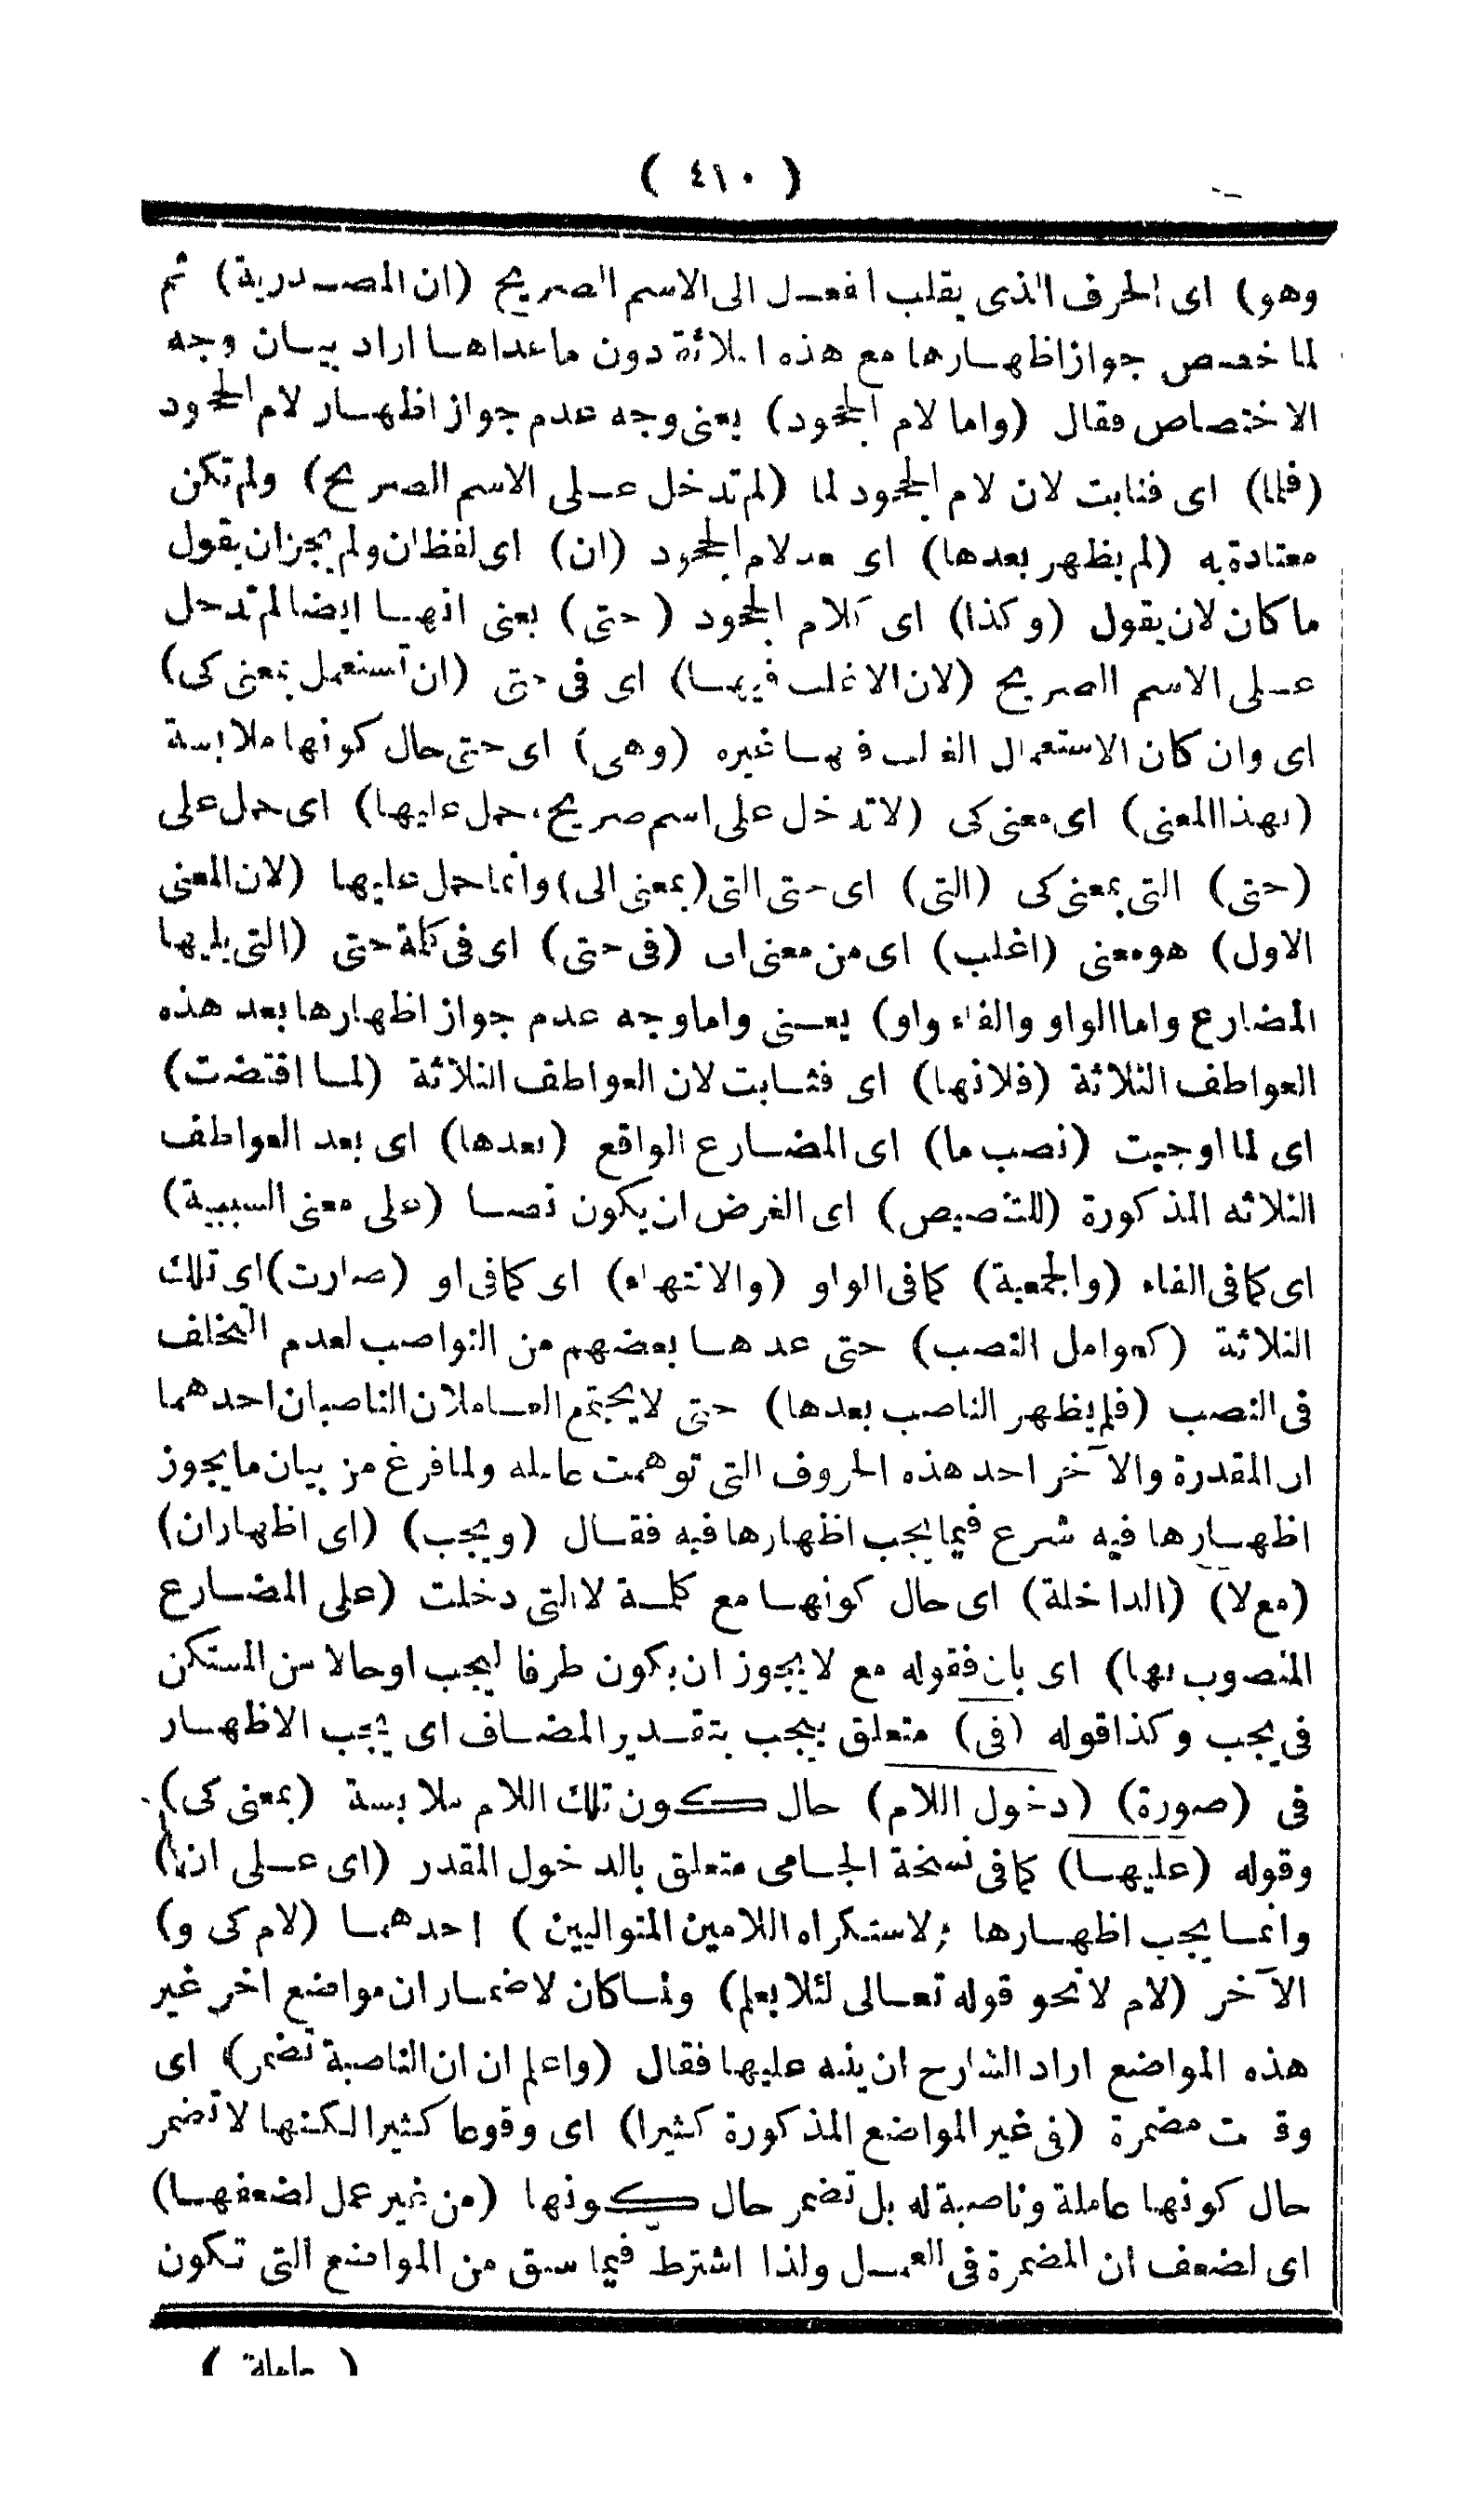 ( ٤١٠ )
وهو) اى الحرف الذى يقلب الفعل الى الاسم الصريح (ان المصدرية) ثم
لما خصص جواز اظهارها مع هذه الثلاثة دون ماعداها اراد بيان وجه
الاختصاص فقال (واما لام الجحود) يعنى وجه عدم جواز اظهار لام الجحود
(فلما) اى فثابت لان لام الجحود لما (لم تدخل على الاسم الصريح) ولم تكن
معتادة به (لم يظهر بعدها) اى بعد لام الجحود (ان) اى لفظ ان ولم يجز ان يقول
ما كان لان يقول (وكذا) اى كلام الجحود (حتى) يعنى انها ايضا لم تدخل
على الاسم الصريح (لان الاغلب فيها) اى فى حتى (ان تستعمل بمعنى كى)
اى وان كان الاستعمال الغالب فيها غيره (وهى) اى حتى حال كونها ملابسة
(بهذا المعنى) اى معنى كى (لا تدخل على اسم صريح، حمل عليها) اى حمل على
(حتى) التى بمعنى كى (التى) اى حتى التى (بمعنى الى) وانما حمل عليها (لان المعنى
الاول) هو معنى (اغلب) اى من معنى الى (فى حتى) اى فى كلمة حتى (التى يليها
المضارع واما الواو والفاء واو) يعنى واما وجه عدم جواز اظهارها بعد هذه
العواطف الثلاثة (فلانها) اى فثابت لان العواطف الثلاثة (لما اقتضت)
اى لما اوجبت (نصب ما) اى المضارع الواقع (بعدها) اى بعد العواطف
الثلاثه المذكورة (للتنصيص) اى الغرض ان يكون نصا (على معنى السببية)
اى كما فى الفاء (والجمعية) كما فى الواو (والانتهاء) اى كما فى او (صارت) اى تلك
الثلاثة (كعوامل النصب) حتى عدها بعضهم من النواصب لعدم التخلف
فى النصب (فلم يظهر الناصب بعدها) حتى لا يجتمع العاملان الناصبان احدهما
ان المقدرة والآخر احد هذه الحروف التى توهمت عامله ولما فرغ من بيان ما يجوز
اظهارها فيه شرع فيما يجب اظهارها فيه فقال (ويجب) (اى اظهاران)
(مع لا) (الداخلة) اى حال كونها مع كلمة لا التى دخلت (على المضارع
المنصوب بها) اى بان فقوله مع لا يجوز ان يكون ظرفا ليجب اوحالا من المستكن
فى يجب وكذا قوله (فى) متعلق بيجب بتقدير المضاف اى يجب الاظهار
فى (صورة) (دخول اللام) حال كون تلك اللام ملابسة (بمعنى كى)
وقوله (عليها) كما فى نسخة الجامى متعلق بالدخول المقدر (اى على انها)
وانما يجب اظهارها (لاستكراه اللامين المتواليين) احدهما (لام كى و)
الآخر (لام لا نحو قوله تعالى لئلا يعلم) ولما كان لاضمار ان مواضع اخر غير
هذه المواضع اراد الشارح ان ينبه عليها فقال (واعلم ان ان الناصبة تضمر) اى
وقعت مضمرة (فى غير المواضع المذكورة كثيرا) اى وقوعا كثيرا لكنها لا تضمر
حال كونها عاملة وناصبة له بل تضمر حال كونها (من غير عمل لضعفها)
اى لضعف ان المضمرة فى العمل ولذا اشترط فيما سبق من المواضع التى تكون
( عاملة )